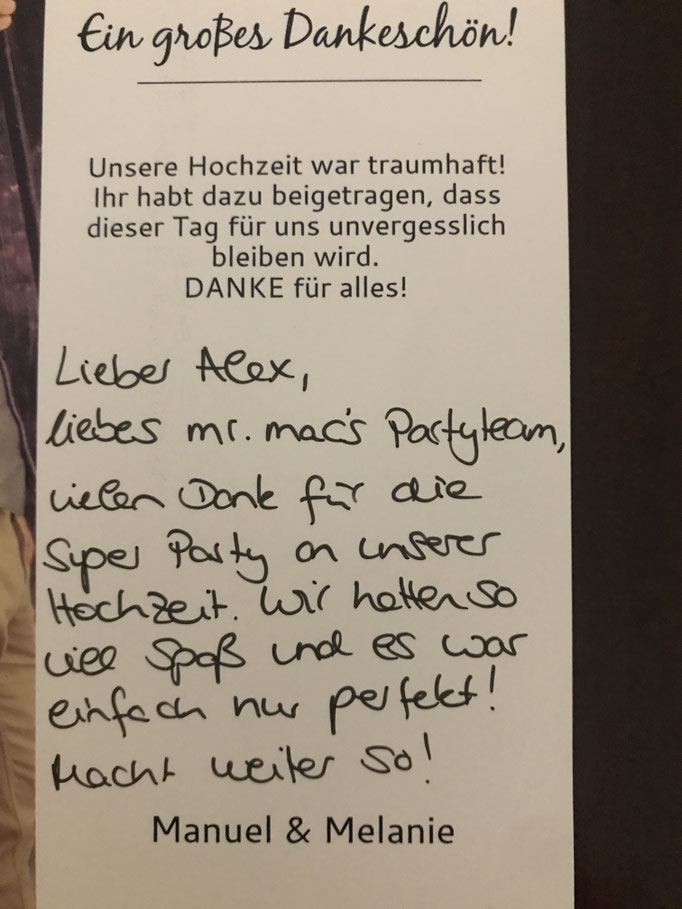 Ein großes Dankeschön!
Unsere Hochzeit war traumhaft!
Ihr habt dazu beigetragen, dass
dieser Tag für uns unvergesslich
bleiben wird.
DANKE für alles!
Lieber Alex,
liebes mr. mac's Partyteam,
vielen Dank für die
Super Party an unserer
Hochzeit. Wir hatten so
viel Spaß und es war
einfach nur perfekt!
Macht weiter so!
Manuel & Melanie